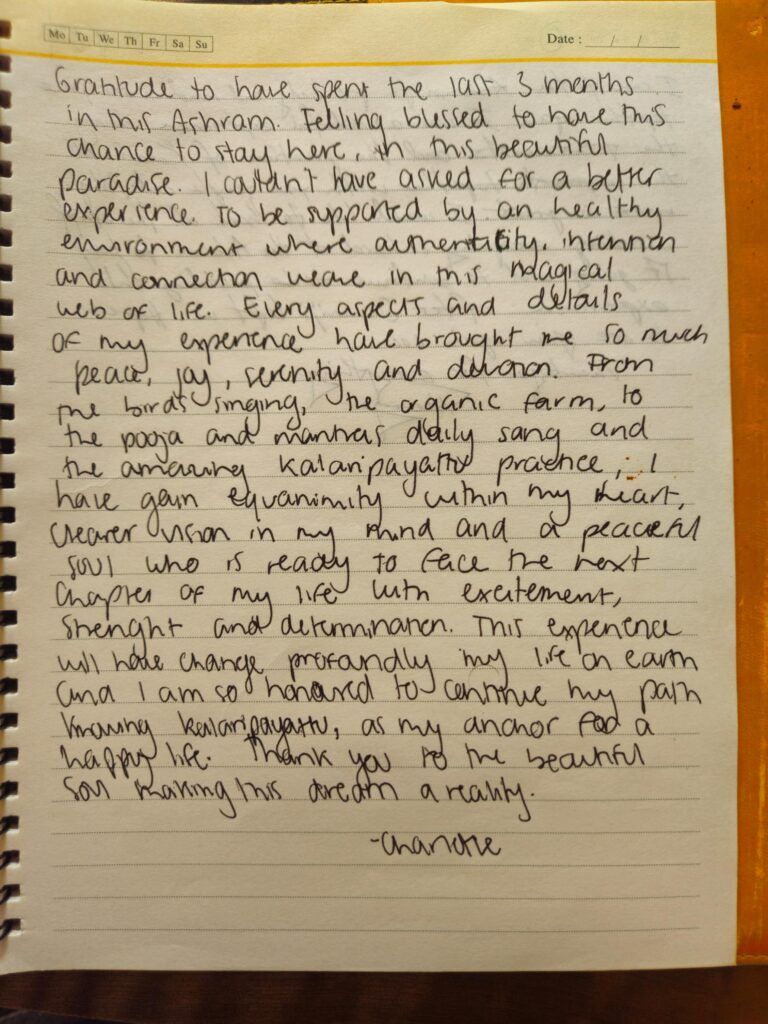 Mo Tu We Th Fr Sa Su
Date : __/__/__
Gratitude to have spent the last 3 months
in this Ashram. Felling blessed to have this
chance to stay here, in this beautiful
paradise. I couldn't have asked for a better
experience to be supported by an healthy
environment where authenticity, intention
and connection weave in this magical
web of life. Every aspects and details
of my experience have brought me so much
peace, joy, serenity and devotion. From
the birds singing, the organic farm, to
the pooja and mantras daily sang and
the amazing Kalaripayattu practice, I
have gain equanimity within my heart,
clearer vision in my mind and a peaceful
soul who is ready to face the next
chapter of my life with excitement,
strenght and determination. This experience
will have change profandly my life on earth
and I am so honored to continue my path
knowing kalaripayattu, as my anchor for a
happy life. Thank you to the beautiful
soul making this dream a reality.